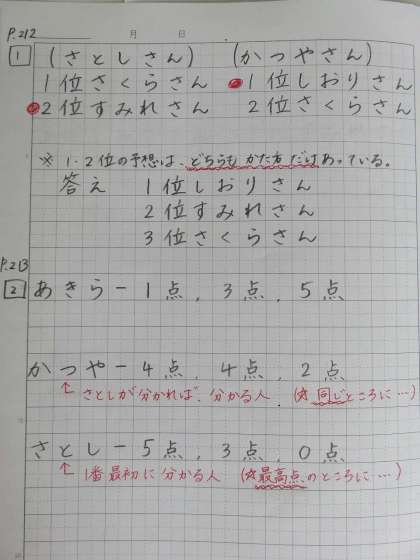 P.212
月 日
1 (さとしさん) (かつやさん)
1位さくらさん 1位しおりさん
2位すみれさん 2位さくらさん
※ 1・2位の予想は、どちらもかた方だけあっている。
答え 1位しおりさん
2位すみれさん
3位さくらさん
P.213
2 あきらー1点、3点、5点
かつやー4点、4点、2点
↑さとしが分かれば、分かる人 (☆同じところに…)
さとしー5点、3点、0点
↑1番最初に分かる人 (☆最高点のところに…)